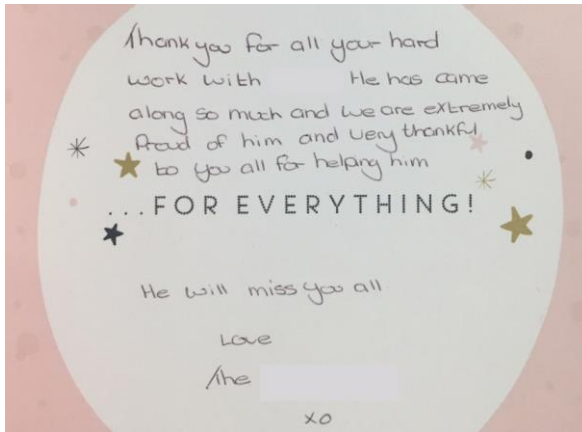 Thank you for all your hard
work with He has came
along so much and we are extremely
Proud of him and very thankful
to you all for helping him
...FOR EVERYTHING!
He will miss you all
Love
The
xo